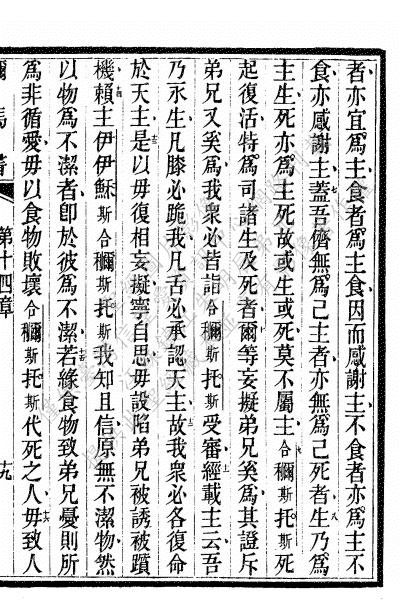 者亦宜爲主食者爲主食因而感謝主不食者亦爲主不
食亦感謝主蓋吾儕無爲己主者亦無爲己死者生乃爲
主生死亦爲主死故或生或死莫不屬主合穪斯托斯死
起復活特爲可諸生及死者爾等妄擬弟兄奚爲其證斥
弟兄又奚爲我衆必皆詣合穪斯托斯受審經載主云吾
乃永生凡膝必跪我凡舌必承認天主故我衆必各復命
於天主是以毋復相妄擬寧自思毋設陷弟兄被誘被躓
機賴主伊伊穌斯合穪斯托斯我知且信原無不潔物然
以物爲不潔者卽於彼爲不潔若緣食物致弟兄憂則所
爲非循愛毋以食物敗壞合穪斯托斯代死之人毋致人
第十四章